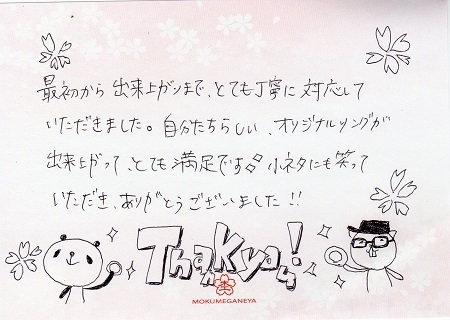 最初から出来上がりまで、とても丁寧に対応して
いただきました。自分たちらしい、オリジナルリングが
出来上がって、とても満足です 小ネタにも笑って
いただき、ありがとうございました!!
Thank you!
MOKUMEGANEYA